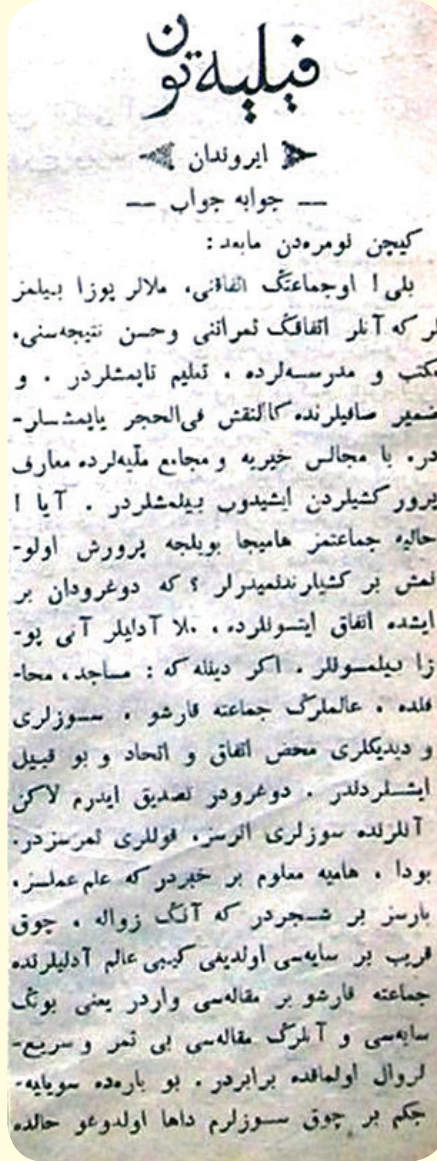 فیلیه‌تون
ایروندان
— جوابه جواب —
کیچن نومره‌دن مابعد :
بلی ! اوجماعتڭ اتفاقنی، ملالر پوزا بیلمز
لر که آنلر اتفاقڭ ثمراتنی وحسن نتیجه‌سنی،
مکتب و مدرسه‌لرده ، تعلیم تاپمشلردر . و
ضمیر صافیلرنده کالنقش فی‌الحجر یاپمشلر-
در، یا مجالس خیریه و مجامع ملّیه‌لرده معارف
پرور کشیلردن ایشیدوب بیلمشلردر . آیا !
حالیه جماعتمز هامیجا بویلجه پرورش اولو-
نمش بر کشیلرندنمیدرلر ؟ که دوغرودان بر
ایشده اتفاق ایتسونلرده ، ملا آدلیلر آنی پو-
زا بیلمسونلر . اکر دینله که : مساجد، محا-
فلده ، عالملرڭ جماعته قارشو ، سوزلری
و دیدیکلری محض اتفاق و اتحاد و بو قبیل
ایشلردندر . دوغرودر تصدیق ایدرم لاکن
آنلرنده سوزلری اثرسز، قوللری ثمرسزدر.
بودا ، هامیه معلوم بر خبردر که عالم عملسز،
بارسز بر شجردر که آنڭ زواله ، چوق
قریب بر سایه‌سی اولدیغی کیبی عالم آدلیلرنده
جماعته قارشو بر مقاله‌سی واردر یعنی بونڭ
سایه‌سی و آنلرڭ مقاله‌سی بی ثمر و سریع-
لزوال اولماقده برابردر . بو باره‌ده سویلیه-
جکم بر چوق سوزلرم داها اولدوغو حالده